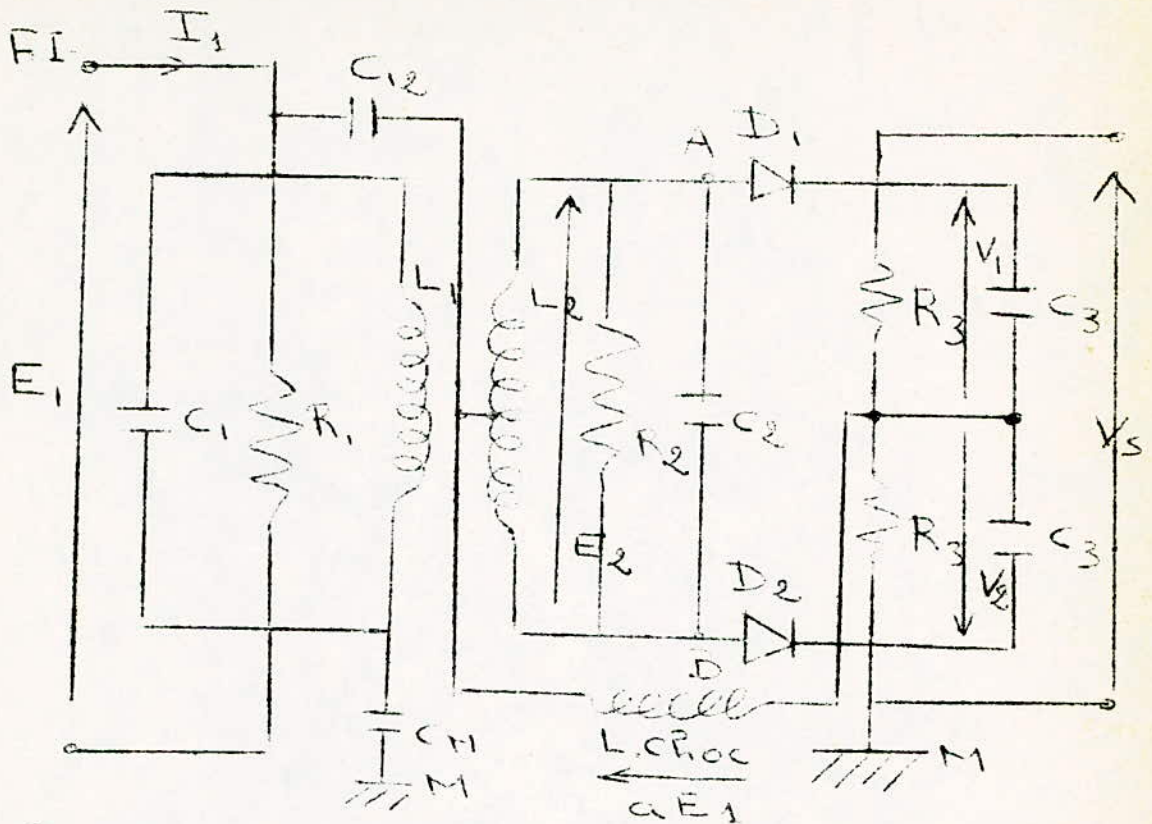 FI
I₁
C₁₂
A
D₁
E₁
C₁
R₁
L₁
L₂
E₂
R₂
C₂
R₃
V₁
C₃
R₃
V₂
C₃
Vs
D₂
D
CM
M
L.choc
aE₁
M